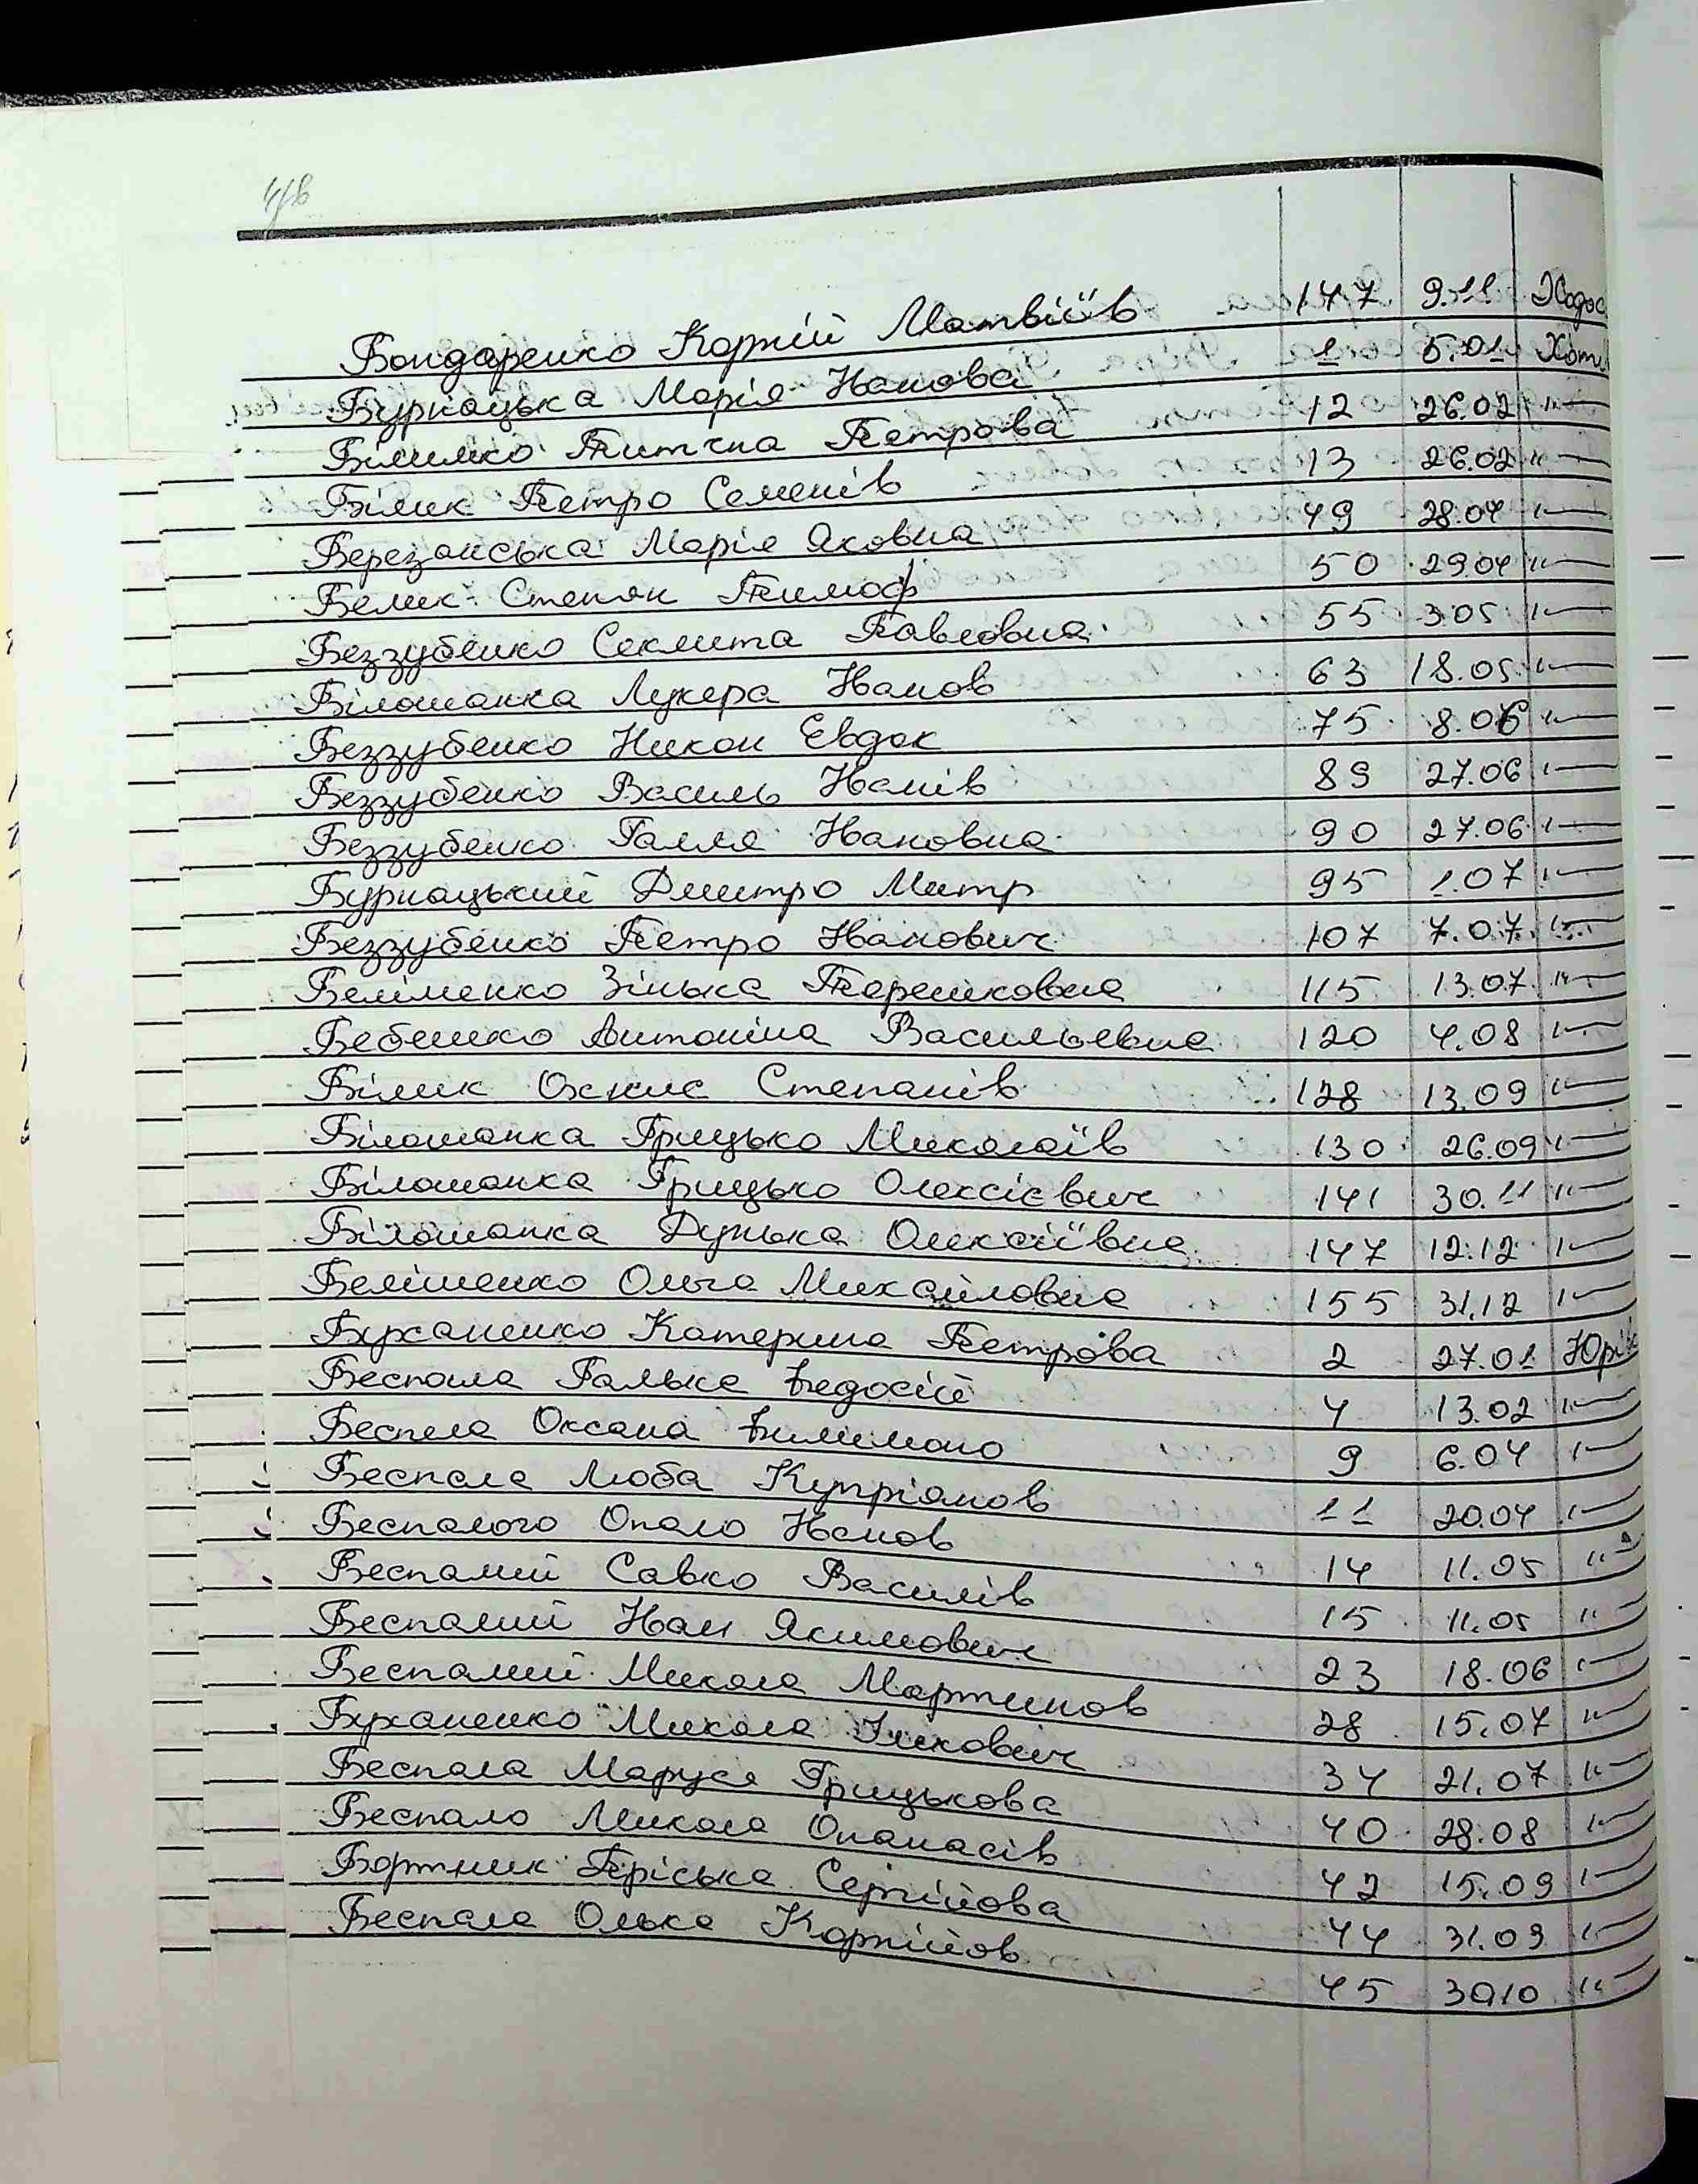 478
Бондаренко Корній Матвіїв 147 9.11 Ходос
Бурнацька Марія Іванова 1 5.01 Хотів
Білимко Тит Петрова 12 26.02 "—
Білик Петро Семенів 13 26.02 "—
Березанська Марія Яковна 49 28.04 "—
Белик Степан Тимоф 50 29.04 "—
Беззубенко Секлита Павловна 55 3.05 "—
Білошапка Лукера Іванов 63 18.05 "—
Беззубенко Никон Евдок 75 8.06 "—
Беззубенко Василь Іванів 89 27.06 "—
Беззубенко Галля Івановна 90 27.06 "—
Бурнацький Дмитро Митр 95 1.07 "—
Беззубенко Петро Іванович 107 7.07 "—
Беліменко Зінька Терешковна 115 13.07 "—
Бебешко Антоніна Васильевна 120 4.08 "—
Білик Степанів 128 13.09 "—
Білошапка Грицько Миколаїв 130 26.09 "—
Білошапка Грицько Олексієвич 141 30.11 "—
Білошапка Дунька Олексіївна 147 12.12 "—
Беліменко Ольга Михайловна 155 31.12 "—
Буханенко Катерина Петрова 2 27.01 Юрів
Беспала Галька Федосій 4 13.02 "—
Беспала Оксана Филимоно 9 6.04 "—
Беспала Люба Купріянов 11 20.04 "—
Беспалого Опало Іванов 14 11.05 "
Беспалий Савко Василів 15 11.05 "
Беспалий Іван Якимович 23 18.06 "—
Беспалий Микола Мартинов 28 15.07 "—
Буханенко Микола Ількович 34 21.07 "—
Беспала Маруся Грицькова 40 28.08 "—
Беспало Микола Опанасів 42 15.09 "—
Бортник Пріська Сергійова 44 31.09 "—
Беспала Олька Корнійов 45 30.10 "—